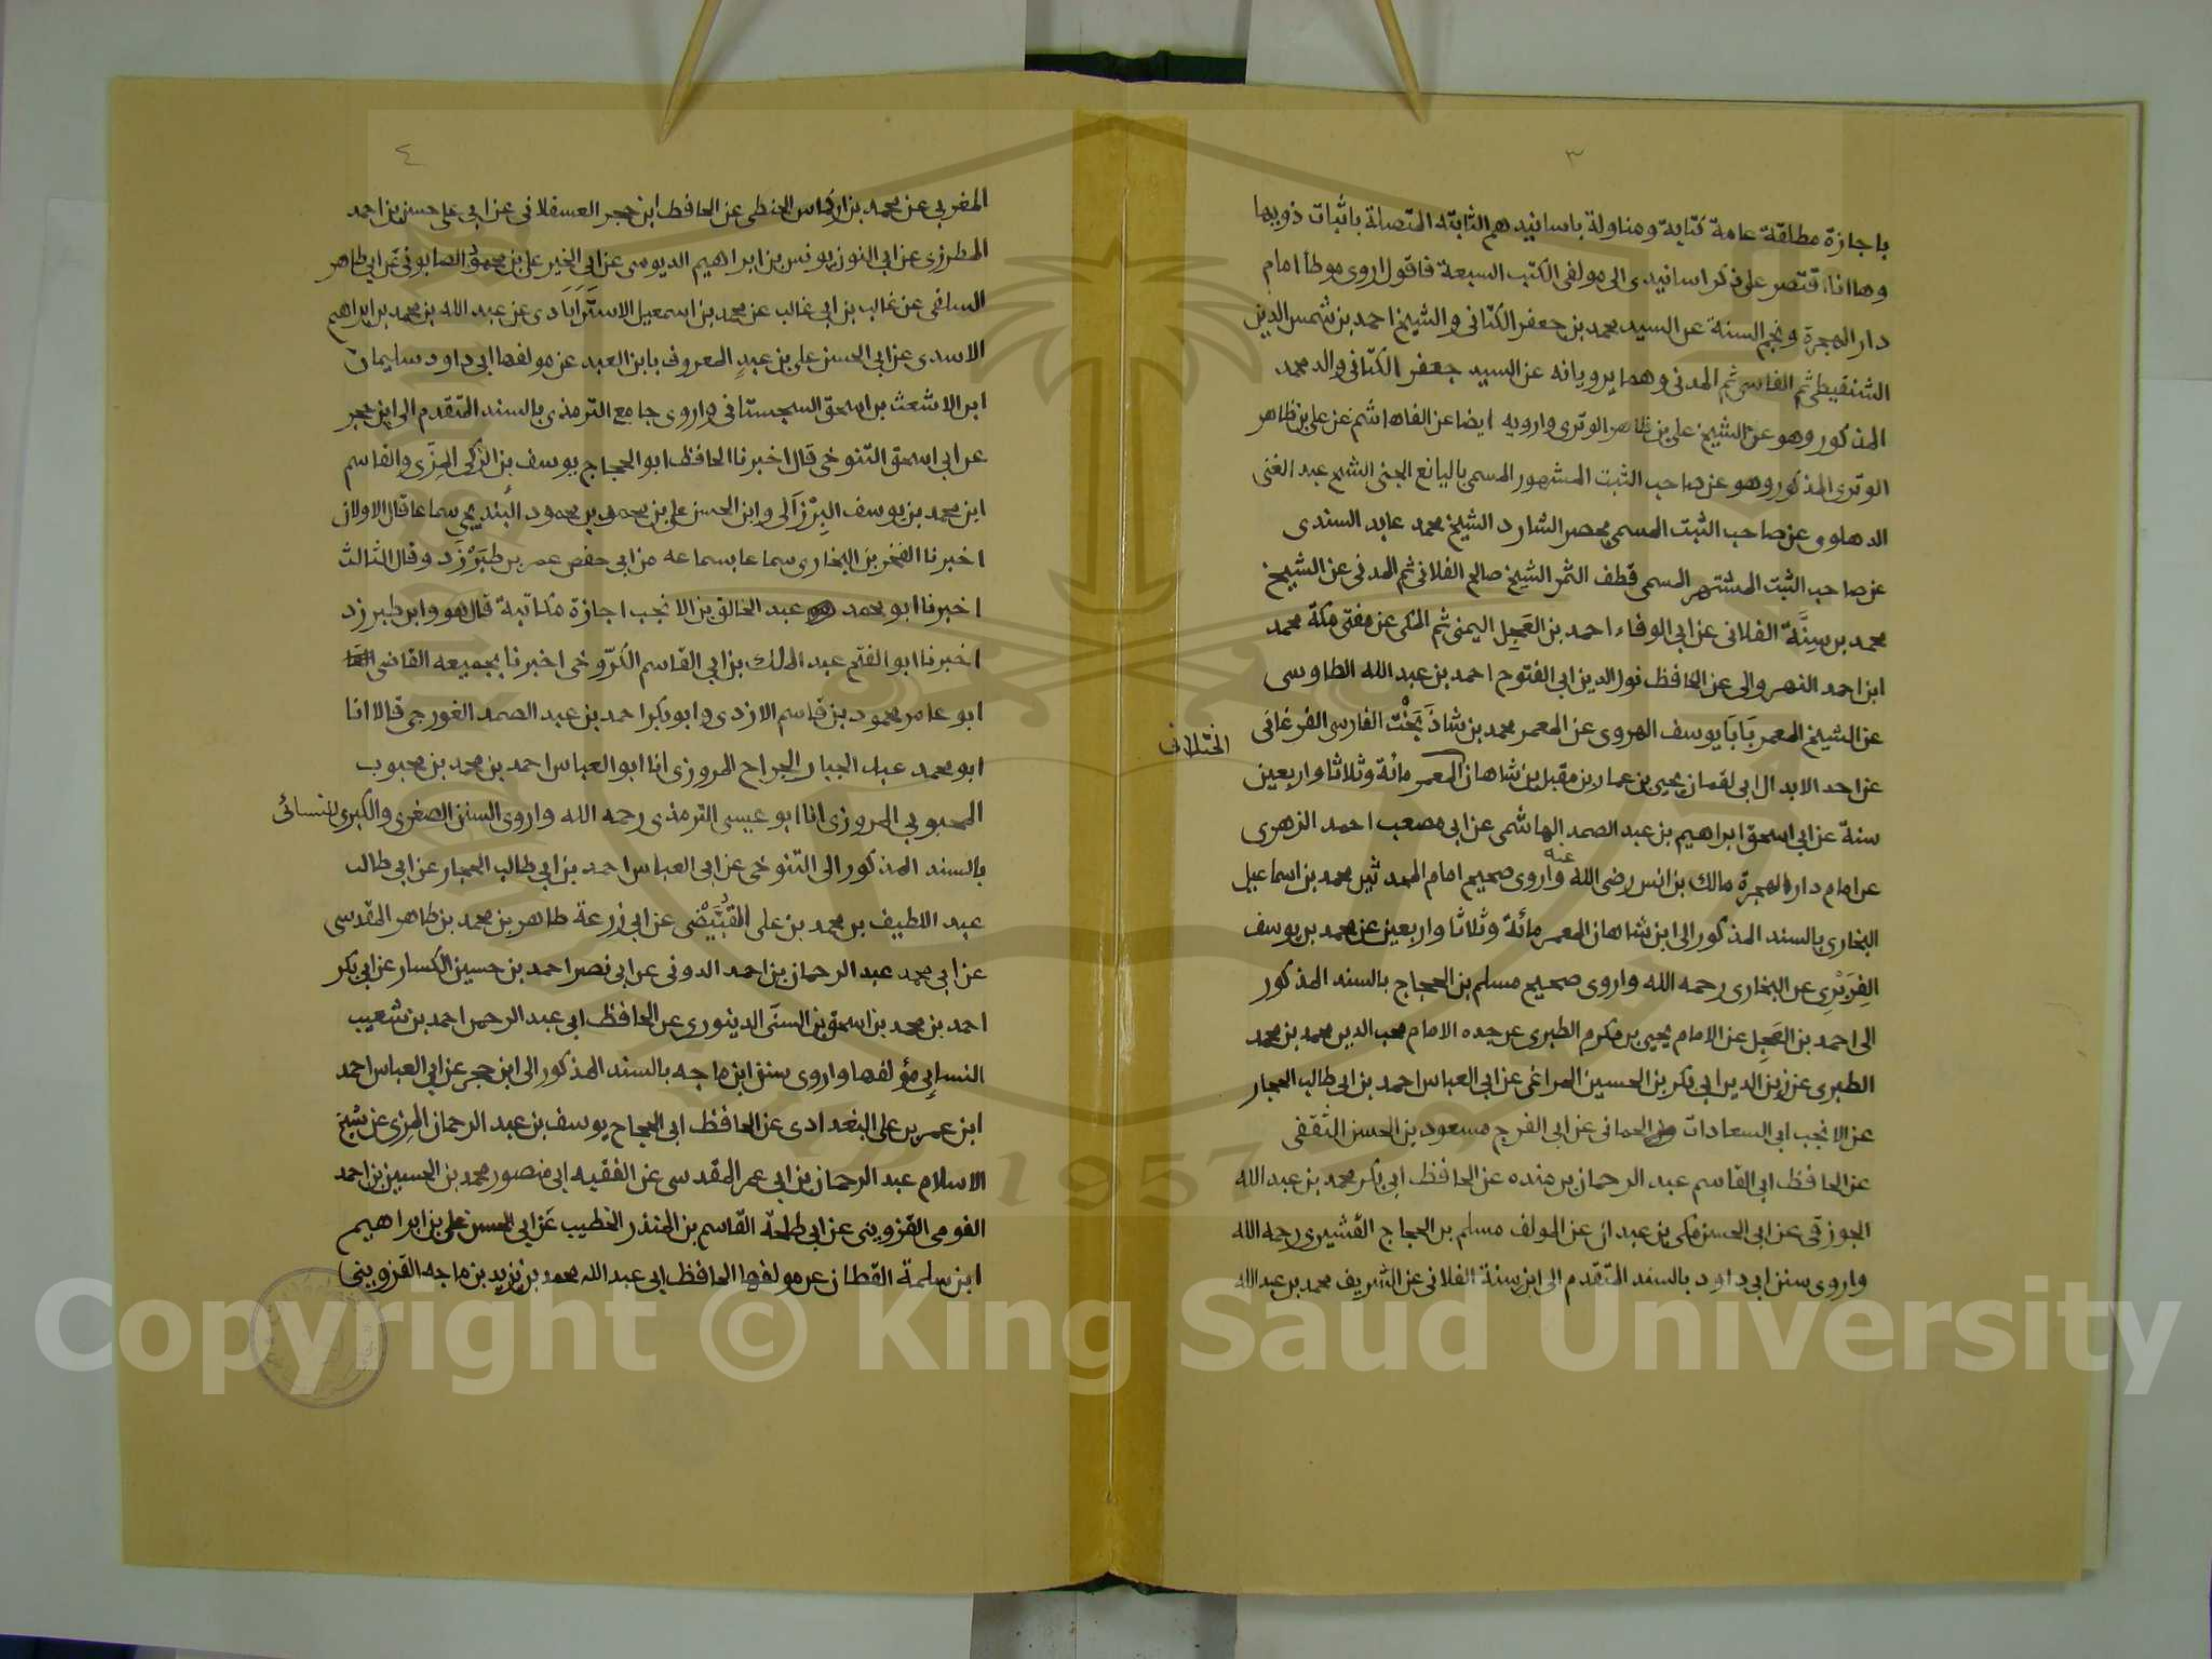 ٣
باجازة مطلقة عامة كتابة ومناولة باسانيدهم الثابته المتصلة باثبات ذويها
وها انا اقتصر على ذكر اسانيدى الى مولفى الكتب السبعة فاقول اروى موطأ امام
دار الهجرة ونجم السنة عن السيد محمد بن جعفر الكتانى والشيخ احمد بن شمس الدين
الشنقيطى ثم الفاسى ثم المدنى وهما يرويانه عن السيد جعفر الكتانى والد محمد
المذكور وهو عن الشيخ على بن ظاهر الوترى وارويه ايضا عن الفاهاشم عن على بن ظاهر
الوترى المذكور وهو عن صاحب الثبت المشهور المسمى باليانع الجنى الشيخ عبد الغنى
الدهلوى عن صاحب الثبت المسمى بحصر الشارد الشيخ محمد عابد السندى
عن صاحب الثبت المشتهر المسمى قطف الثمر الشيخ صالح الفلانى ثم المدنى عن الشيخ
محمد بن سِنَّة الفلانى عن ابى الوفاء احمد بن العَجِل اليمنى ثم المكى عن مفتى مكة محمد
ابن احمد النهروالى عن الحافظ نور الدين ابى الفتوح احمد بن عبد الله الطاوسى
عن الشيخ المعمر بَابَا يوسف الهروى عن المعمر محمد بن شاذَبَخْت الفارسى الفرغانى
الختلانى
عن احد الابدال ابى لقمان يحيى بن عمار بن مقبل بن شاهان المعمر مائة وثلاثا واربعين
سنة عن ابى اسحق ابراهيم بن عبد الصمد الهاشمى عن ابى مصعب احمد الزهرى
عن امام دار الهجرة مالك بن انس رضى الله عنه واروى صحيح امام المحدثين محمد بن اسماعيل
البخارى بالسند المذكور الى ابن شاهان المعمر مائة وثلاثا واربعين عن محمد بن يوسف
الفِرَبْرِى عن البخارى رحمه الله واروى صحيح مسلم بن الحجاج بالسند المذكور
الى احمد بن العَجِل عن الامام يحيى بن مكرم الطبرى عن جده الامام محب الدين محمد بن محمد
الطبرى عن زين الدين ابى بكر بن الحسين المراغى عن ابى العباس احمد بن ابى طالب الحجار
عن الانجب ابى السعادات الحمانى عن ابى الفرج مسعود بن الحسن الثقفى
عن الحافظ ابى القاسم عبد الرحمان بن منده عن الحافظ ابى بكر محمد بن عبد الله
الجوزقى عن ابى الحسن مكى بن عبدان عن المولف مسلم بن الحجاج القشيرى رحمه الله
واروى سنن ابى داود بالسند المتقدم الى ابن سنة الفلانى عن الشريف محمد بن عبد الله
٤
المغربى عن محمد بن اركماس الحنطى عن الحافظ ابن حجر العسقلانى عن ابى على حسن بن احمد
المطرزى عن ابى النون يونس بن ابراهيم الدبوسى عن ابى الخير على بن محمود الصابونى عن ابى طاهر
السلفى عن غالب بن ابى غالب عن محمد بن اسمعيل الاستَرَابَادى عن عبد الله بن محمد بن ابراهيم
الاسدى عن ابى الحسن على بن عبدٍ المعروف بابن العبد عن مولفها ابى داود سليمان
ابن الاشعث بن اسحق السجستانى واروى جامع الترمذى بالسند المتقدم الى ابن حجر
عن ابى اسحق التنوخى قال اخبرنا الحافظ ابو الحجاج يوسف بن الزكى المِزَّى والقاسم
ابن محمد بن يوسف البِرْزَالى وابن الحسن على بن محمود البُندِيجى سماعا قال الاولان
اخبرنا الفخر بن البخارى سماعا بسماعه من ابى حفص عمر بن طَبَرْزَد وقال الثالث
اخبرنا ابو محمد عبد الخالق بن الانجب اجازة مكاتبة قال هو وابن طبرزد
اخبرنا ابو الفتح عبد الملك بن ابى القاسم الكَرّوخى اخبرنا بجميعه القاضى
ابو عامر محمود بن قاسم الازدى وابو بكر احمد بن عبد الصمد الغورجى قالا انا
ابو محمد عبد الجبار الجراح المروزى انا ابو العباس احمد بن محمد بن محبوب
المحبوبى المروزى انا ابو عيسى الترمذى رحمه الله واروى السنن الصغرى والكبرى للنسائى
بالسند المذكور الى التنوخى عن ابى العباس احمد بن ابى طالب الحجار عن ابى طالب
عبد اللطيف بن محمد بن على القُبَّيْضى عن ابى زرعة طاهر بن محمد بن طاهر المقدسى
عن ابى محمد عبد الرحمان بن احمد الدونى عن ابى نصر احمد بن حسين الكسار عن ابى بكر
احمد بن محمد بن اسحق بن السنى الدينورى عن الحافظ ابى عبد الرحمن احمد بن شعيب
النسائى مؤلفها واروى سنن ابن ماجه بالسند المذكور الى ابن حجر عن ابى العباس احمد
ابن عمر بن على البغدادى عن الحافظ ابى الحجاج يوسف بن عبد الرحمان المزى عن شيخ
الاسلام عبد الرحمان بن ابى عمر المقدسى عن الفقيه ابى منصور محمد بن الحسين بن احمد
القومى القزوينى عن ابى طلحة القاسم بن المنذر الخطيب عن ابى الحسن على بن ابراهيم
ابن سلمة القطان عن مولفها الحافظ ابى عبد الله محمد بن يزيد بن ماجه القزوينى
1957
Copyright © King Saud University